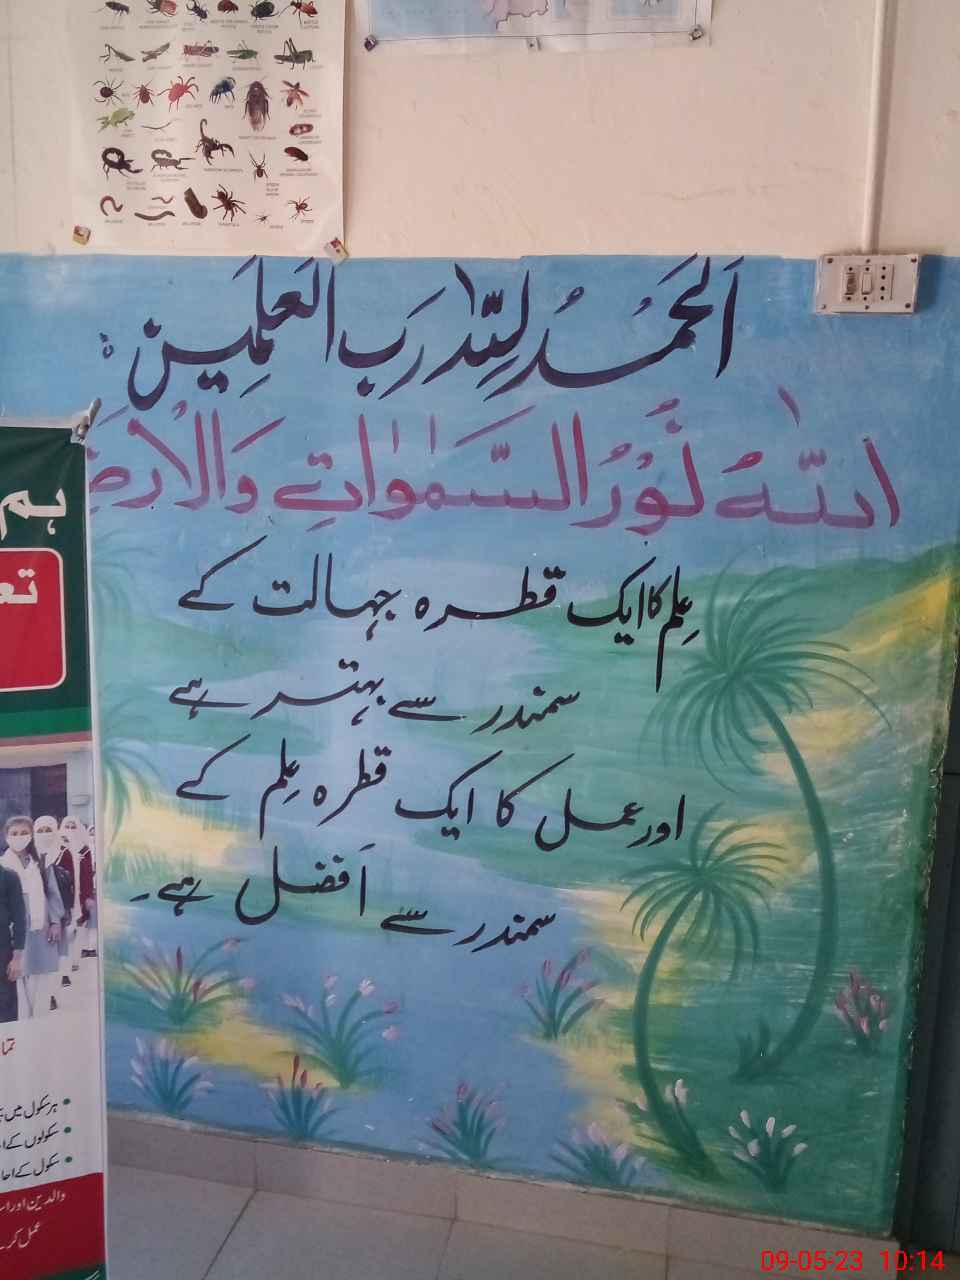 اَلحَمْدُ لِلّٰہِ رَبِ العٰلَمِین
اللّٰہُ نُوْرُ السَّمٰوٰاتِ وَالْارضِ
عِلم کا ایک قطرہ جہالت کے
سمندر سے بہتر ہے
اور عمل کا ایک قطرہ عِلم کے
سمندر سے اَفضل ہے۔
ہم
تع
تما
ہر سکول میں
سکولوں کے
سکول کے احا
والدین اور
عمل کر
09-05-23 10:14